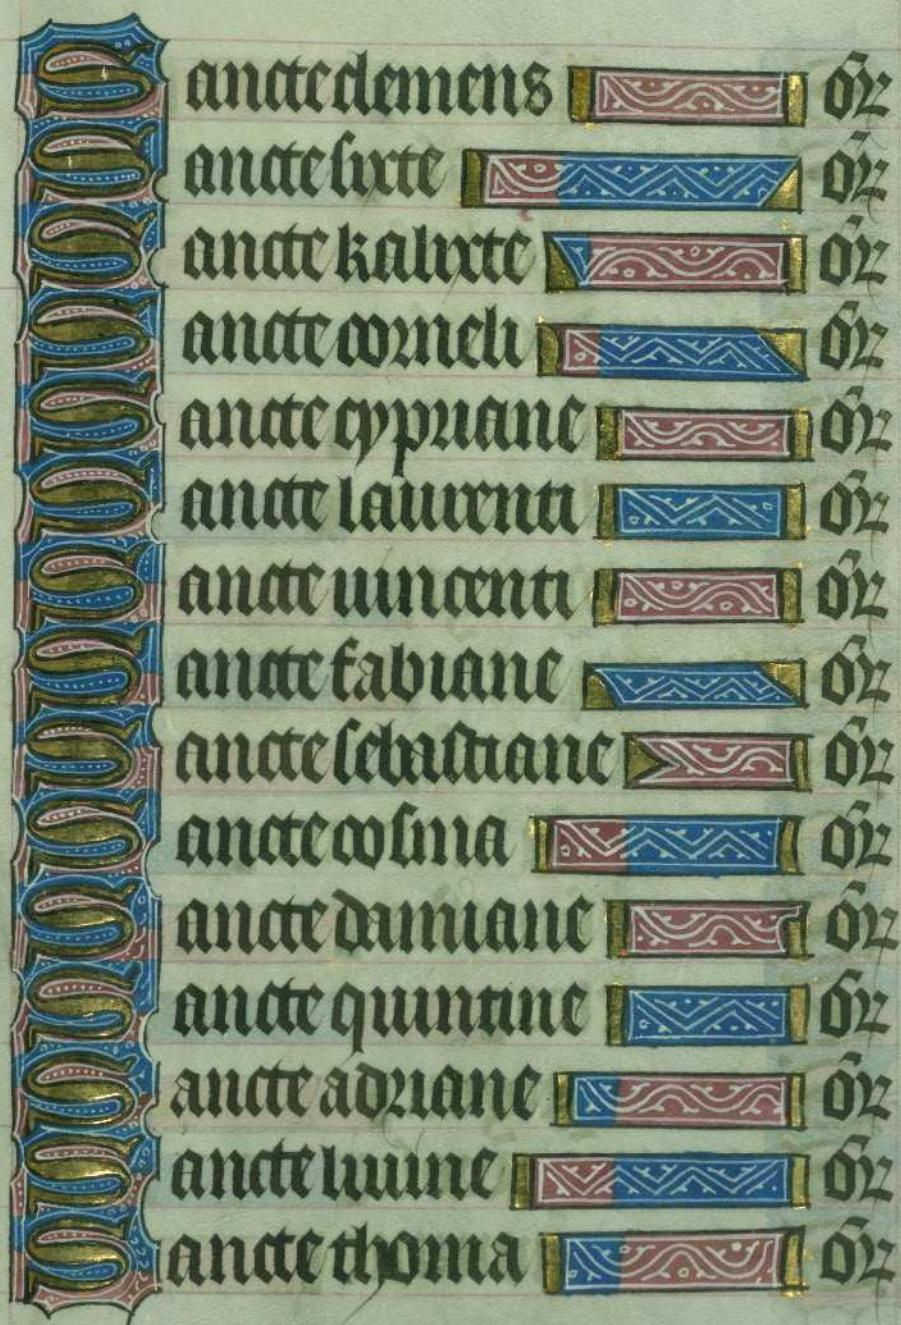 Sancte clemens oꝛ
Sancte sixte oꝛ
Sancte kalixte oꝛ
Sancte corneli oꝛ
Sancte cypriane oꝛ
Sancte laurenti oꝛ
Sancte vincenti oꝛ
Sancte fabiane oꝛ
Sancte sebastiane oꝛ
Sancte cosma oꝛ
Sancte damiane oꝛ
Sancte quintine oꝛ
Sancte adriane oꝛ
Sancte liuine oꝛ
Sancte thoma oꝛ